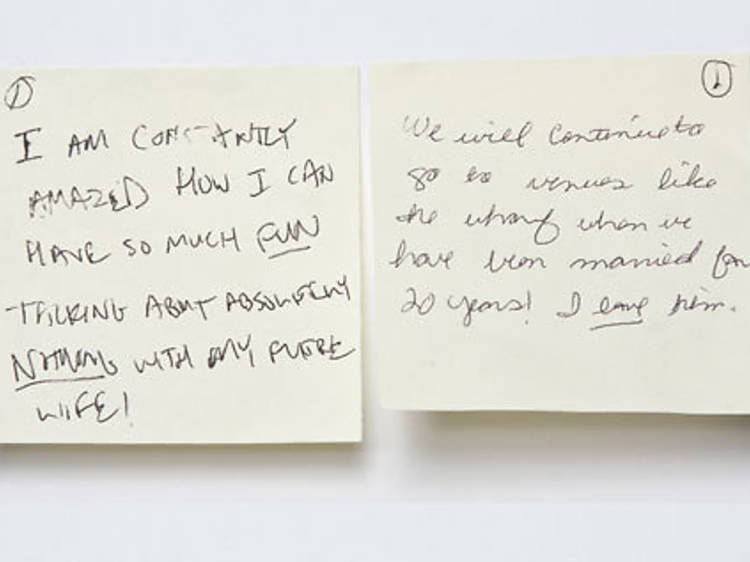 1
I AM CONSTANTLY
AMAZED HOW I CAN
HAVE SO MUCH FUN
TALKING ABOUT ABSOLUTELY
NOTHING WITH MY FUTURE
WIFE!
1
We will continue to
go to venues like
the wharf when we
have been married for
20 years! I love him.